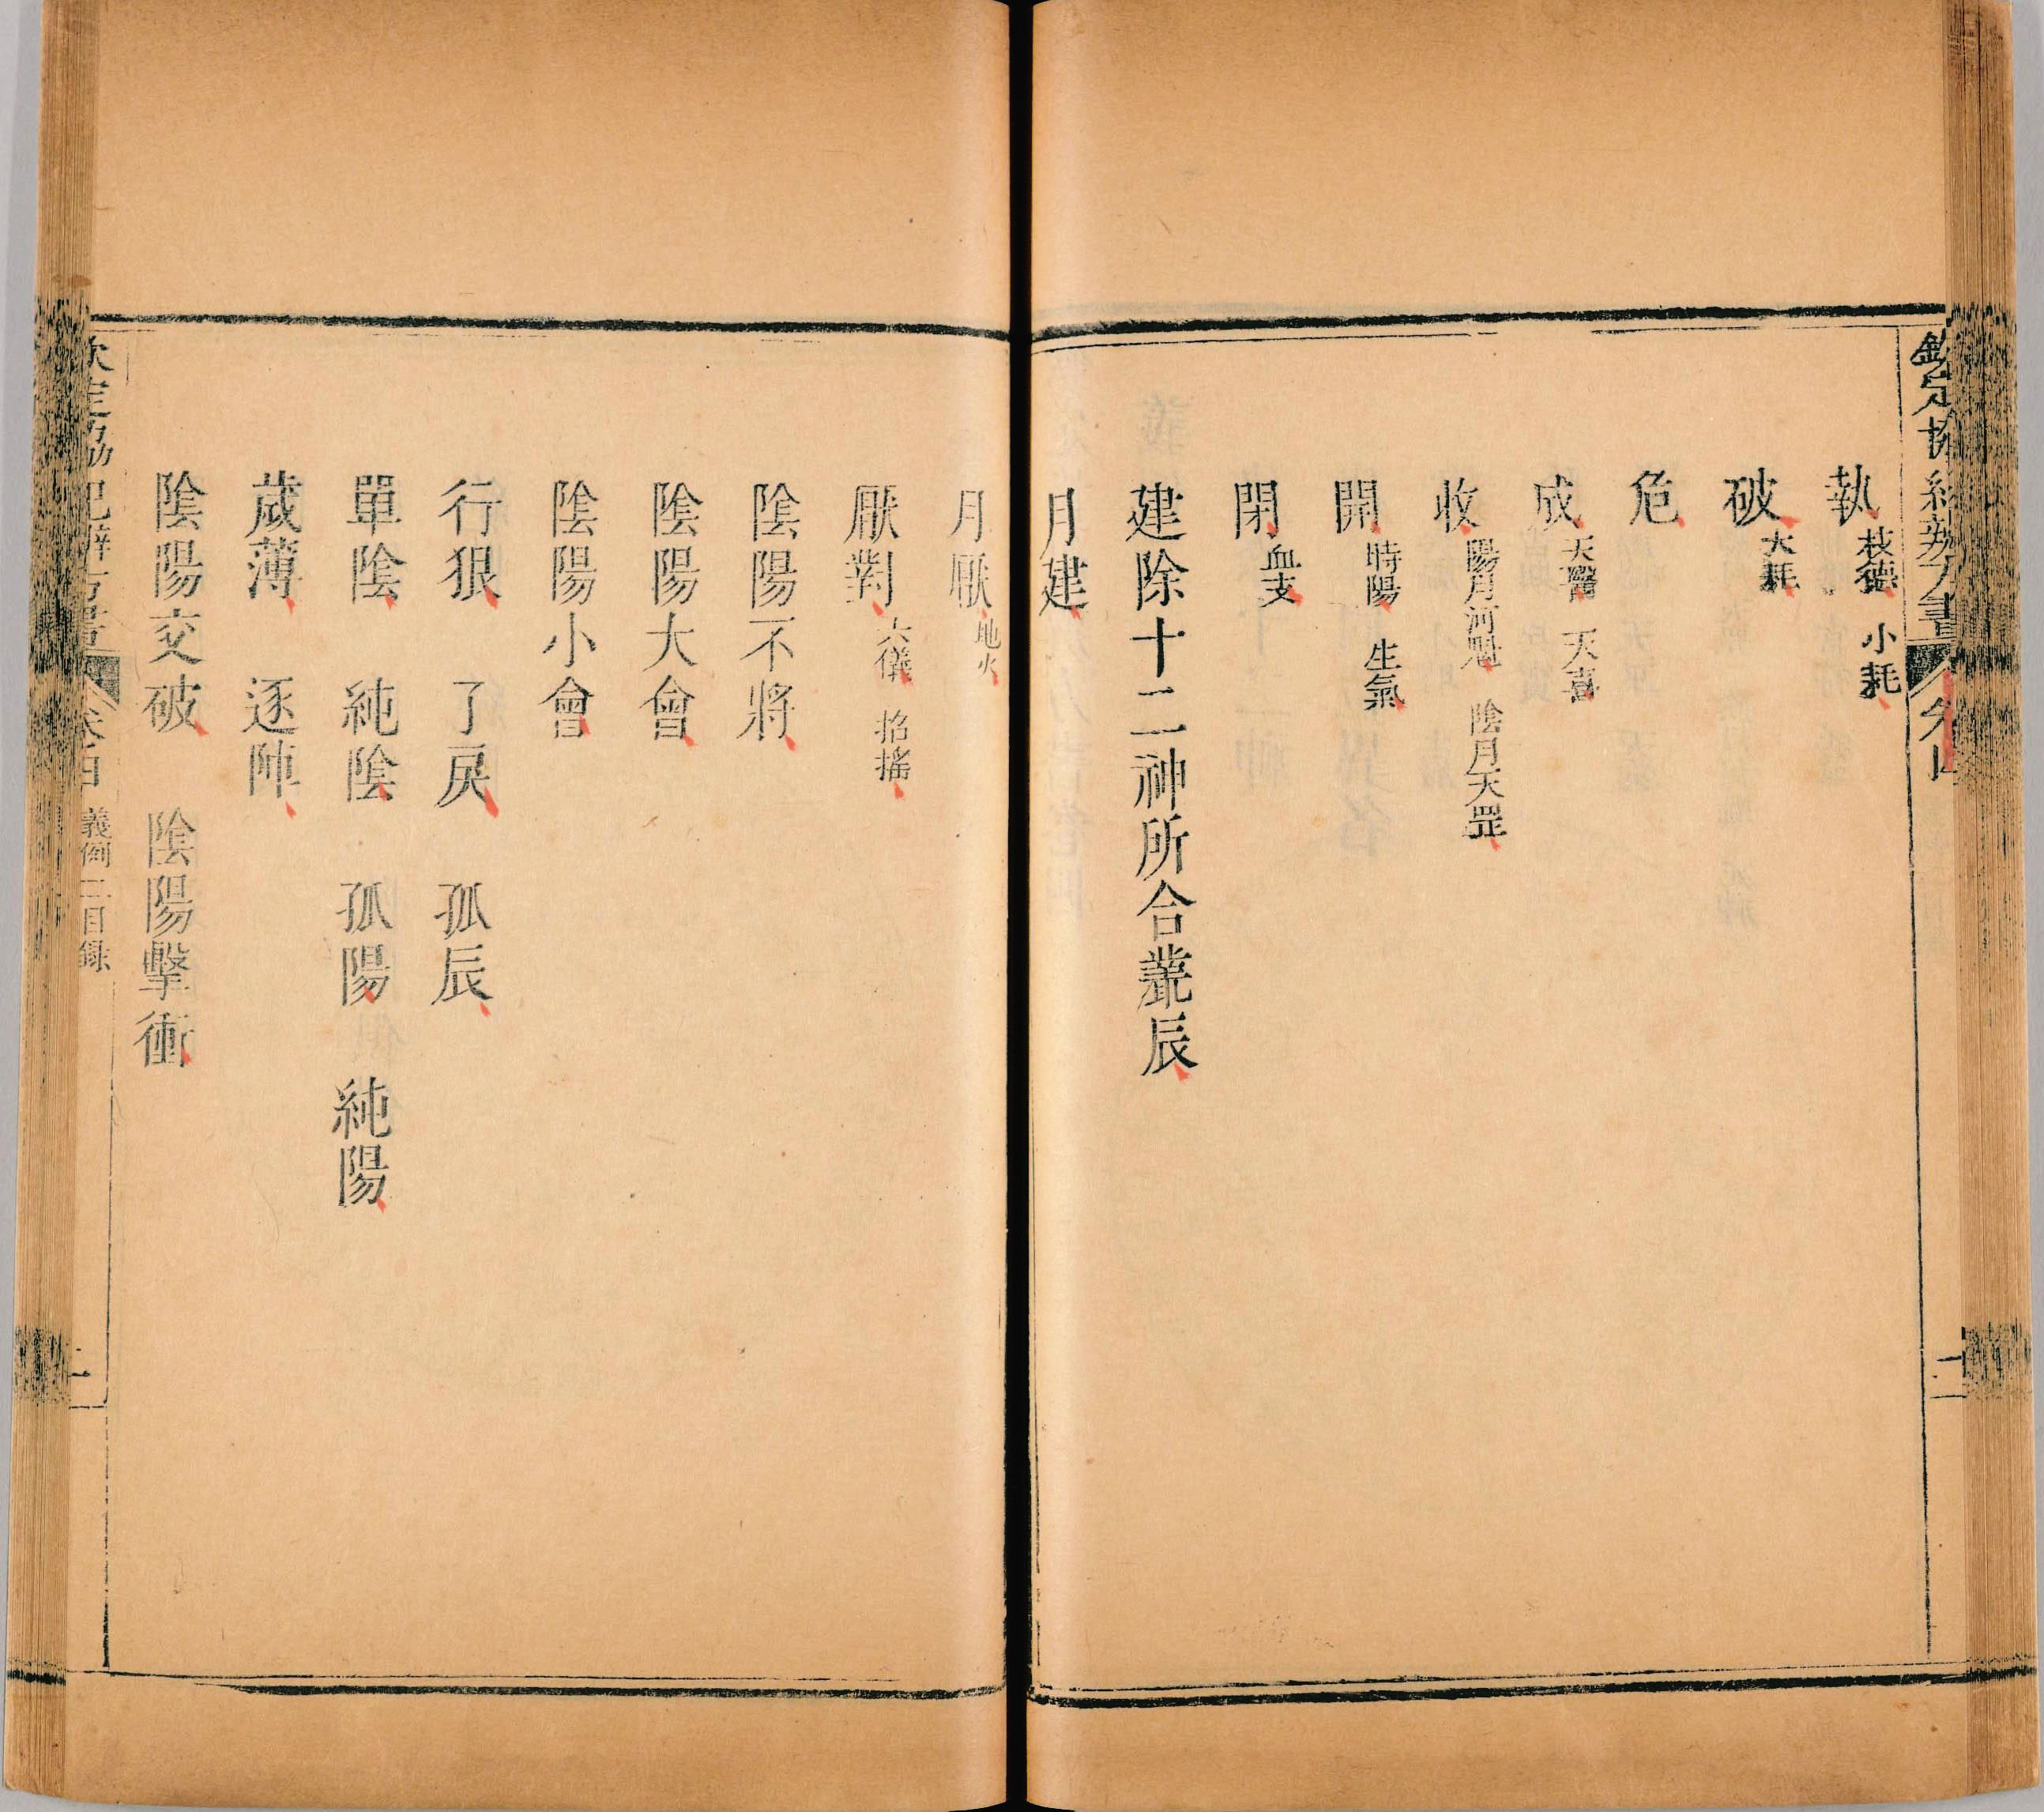 欽定協紀辨方書 卷四
執 枝德 小耗
破 大耗
危
成 天醫 天喜
收 陽月河魁 陰月天罡
開 時陽 生氣
閉 血支
建除十二神所合叢辰
月建
月厭 地火
厭對 六儀 招搖
陰陽不將
陰陽大會
陰陽小會
行狠 了戾 孤辰
單陰 純陰 孤陽 純陽
歲薄 逐陣
陰陽交破 陰陽擊衝
欽定協紀辨方書 卷四 義例二目録